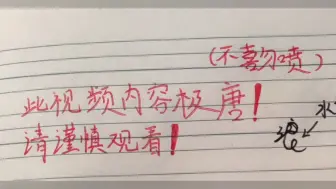 (不喜勿喷)
此视频内容极唐!
请谨慎观看!
水